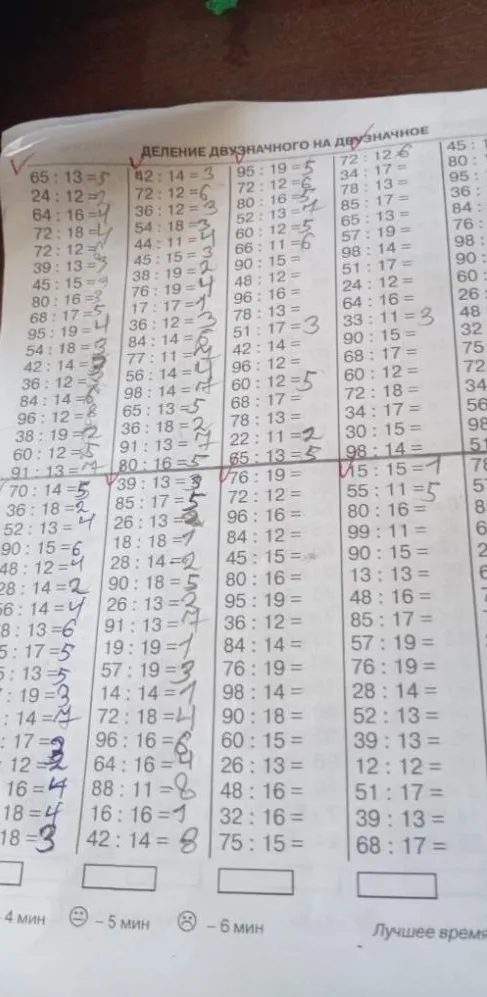 ДЕЛЕНИЕ ДВУЗНАЧНОГО НА ДВУЗНАЧНОЕ
65 : 13 = 5
24 : 12 =
64 : 16 = 4
72 : 18 = 4
72 : 12 =
39 : 13 = 3
45 : 15 =
80 : 16 =
68 : 17 = 5
95 : 19 = 4
54 : 18 = 3
42 : 14 =
36 : 12 =
84 : 14 = 6
96 : 12 = 8
38 : 19 = 2
60 : 12 = 5
91 : 13 = 7
70 : 14 = 5
36 : 18 = 2
52 : 13 = 4
90 : 15 = 6
48 : 12 = 4
28 : 14 = 2
56 : 14 = 4
8 : 13 = 6
5 : 17 = 5
5 : 13 = 5
: 19 = 3
: 14 = 7
: 17 =
12 = 2
16 = 4
18 = 4
18 = 3
42 : 14 = 3
72 : 12 = 6
36 : 12 = 3
54 : 18 = 3
44 : 11 = 4
45 : 15 = 3
38 : 19 = 2
76 : 19 = 4
17 : 17 = 1
36 : 12 = 3
84 : 14 = 6
77 : 11 = 7
56 : 14 = 4
98 : 14 = 7
65 : 13 = 5
36 : 18 = 2
91 : 13 = 7
80 : 16 = 5
39 : 13 = 3
85 : 17 = 5
26 : 13 =
18 : 18 = 1
28 : 14 = 2
90 : 18 = 5
26 : 13 = 2
91 : 13 = 7
19 : 19 = 1
57 : 19 = 3
14 : 14 = 1
72 : 18 = 4
96 : 16 = 6
64 : 16 = 4
88 : 11 = 8
16 : 16 = 1
42 : 14 = 8
95 : 19 = 5
72 : 12 = 6
80 : 16 = 5
52 : 13 =
60 : 12 = 5
66 : 11 = 6
90 : 15 =
48 : 12 =
96 : 16 =
78 : 13 =
51 : 17 = 3
42 : 14 =
96 : 12 =
60 : 12 = 5
68 : 17 =
78 : 13 =
22 : 11 = 2
65 : 13 = 5
76 : 19 =
72 : 12 =
96 : 16 =
84 : 12 =
45 : 15 =
80 : 16 =
95 : 19 =
36 : 12 =
84 : 14 =
76 : 19 =
98 : 14 =
90 : 18 =
60 : 15 =
26 : 13 =
48 : 16 =
32 : 16 =
75 : 15 =
72 : 12 6
34 : 17 =
78 : 13 =
85 : 17 =
65 : 13 =
57 : 19 =
98 : 14 =
51 : 17 =
24 : 12 =
64 : 16 =
33 : 11 = 3
90 : 15 =
68 : 17 =
60 : 12 =
72 : 18 =
34 : 17 =
30 : 15 =
98 : 14 =
15 : 15 = 1
55 : 11 = 5
80 : 16 =
99 : 11 =
90 : 15 =
13 : 13 =
48 : 16 =
85 : 17 =
57 : 19 =
76 : 19 =
28 : 14 =
52 : 13 =
39 : 13 =
12 : 12 =
51 : 17 =
39 : 13 =
68 : 17 =
45 :
80 :
95 :
36 :
84 :
76 :
98 :
90 :
60 :
26
48
32
75
72
34
56
98
51
4 мин – 5 мин – 6 мин
Лучшее время